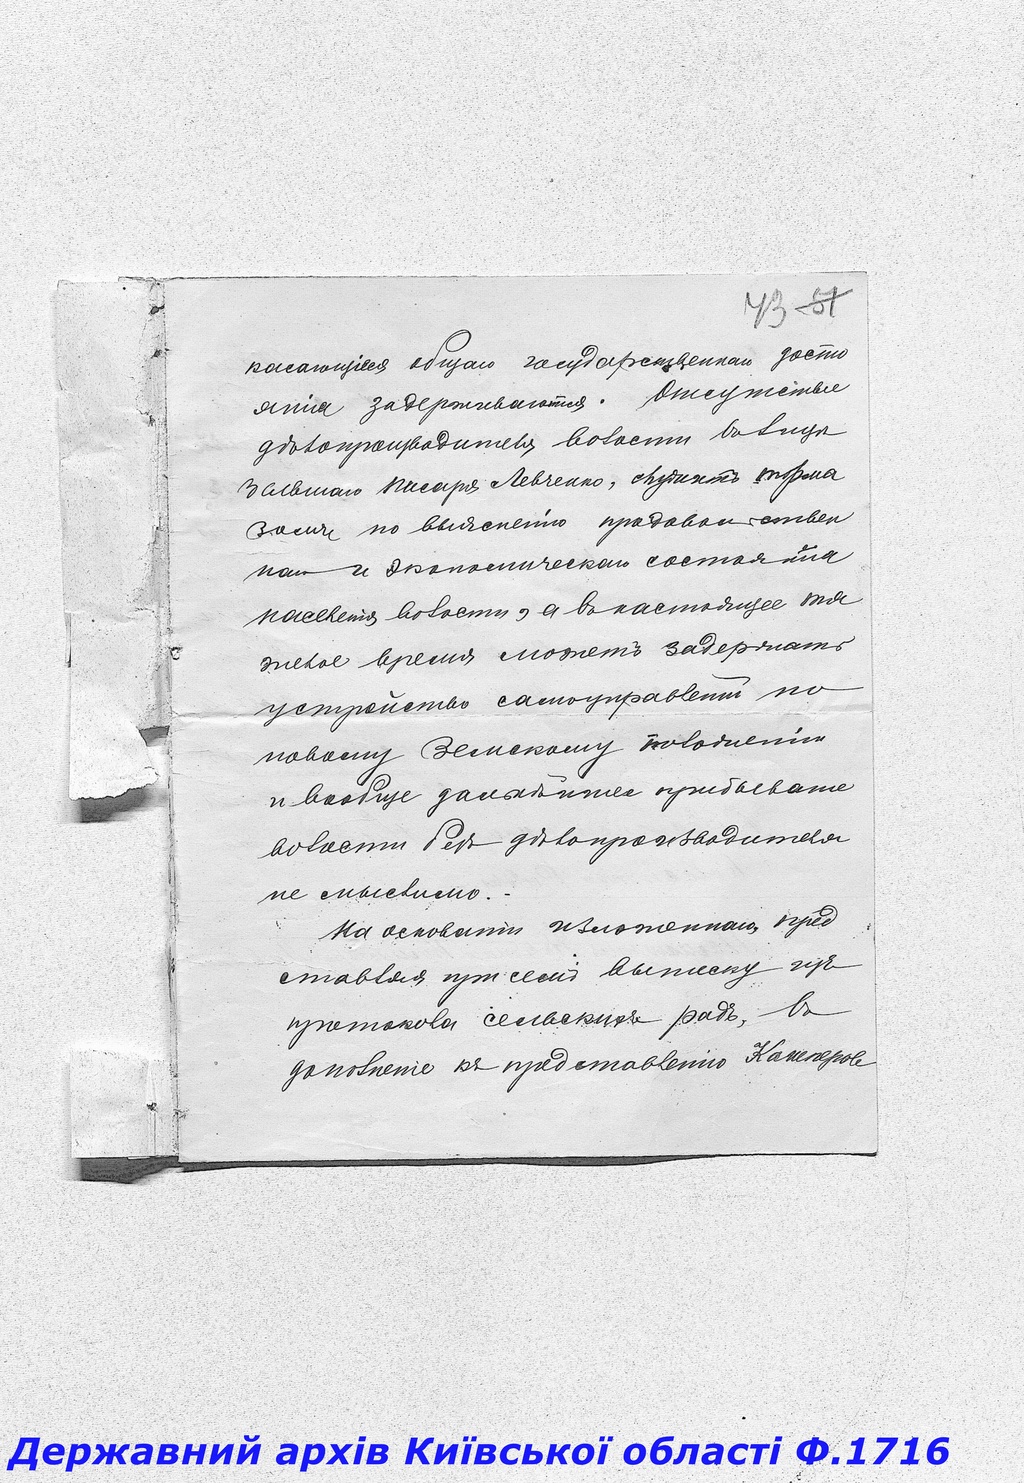 43 51
касающіеся общаго государственнаго досто
янія задерживаются. Отсутствіе
дѣлопроизводителя волости въ лицѣ
бывшаго писаря Левченко, служитъ тарма
зомъ по выясненію продовольствен
наго и экономическаго состоянія
населенія волости, а въ настоящее тя
желое время можетъ задержать
устройство самоуправленій по
новому Земскому положенію
и вообще дальнѣйшее пребываніе
волости безъ дѣлопроизводителя
не мыслимо. -
На основаніи изложеннаго, пред
ставляя при семъ выписку изъ
протокола сельскихъ радъ, въ
дополненіе къ представленію
Державний архів Київської області Ф.1716